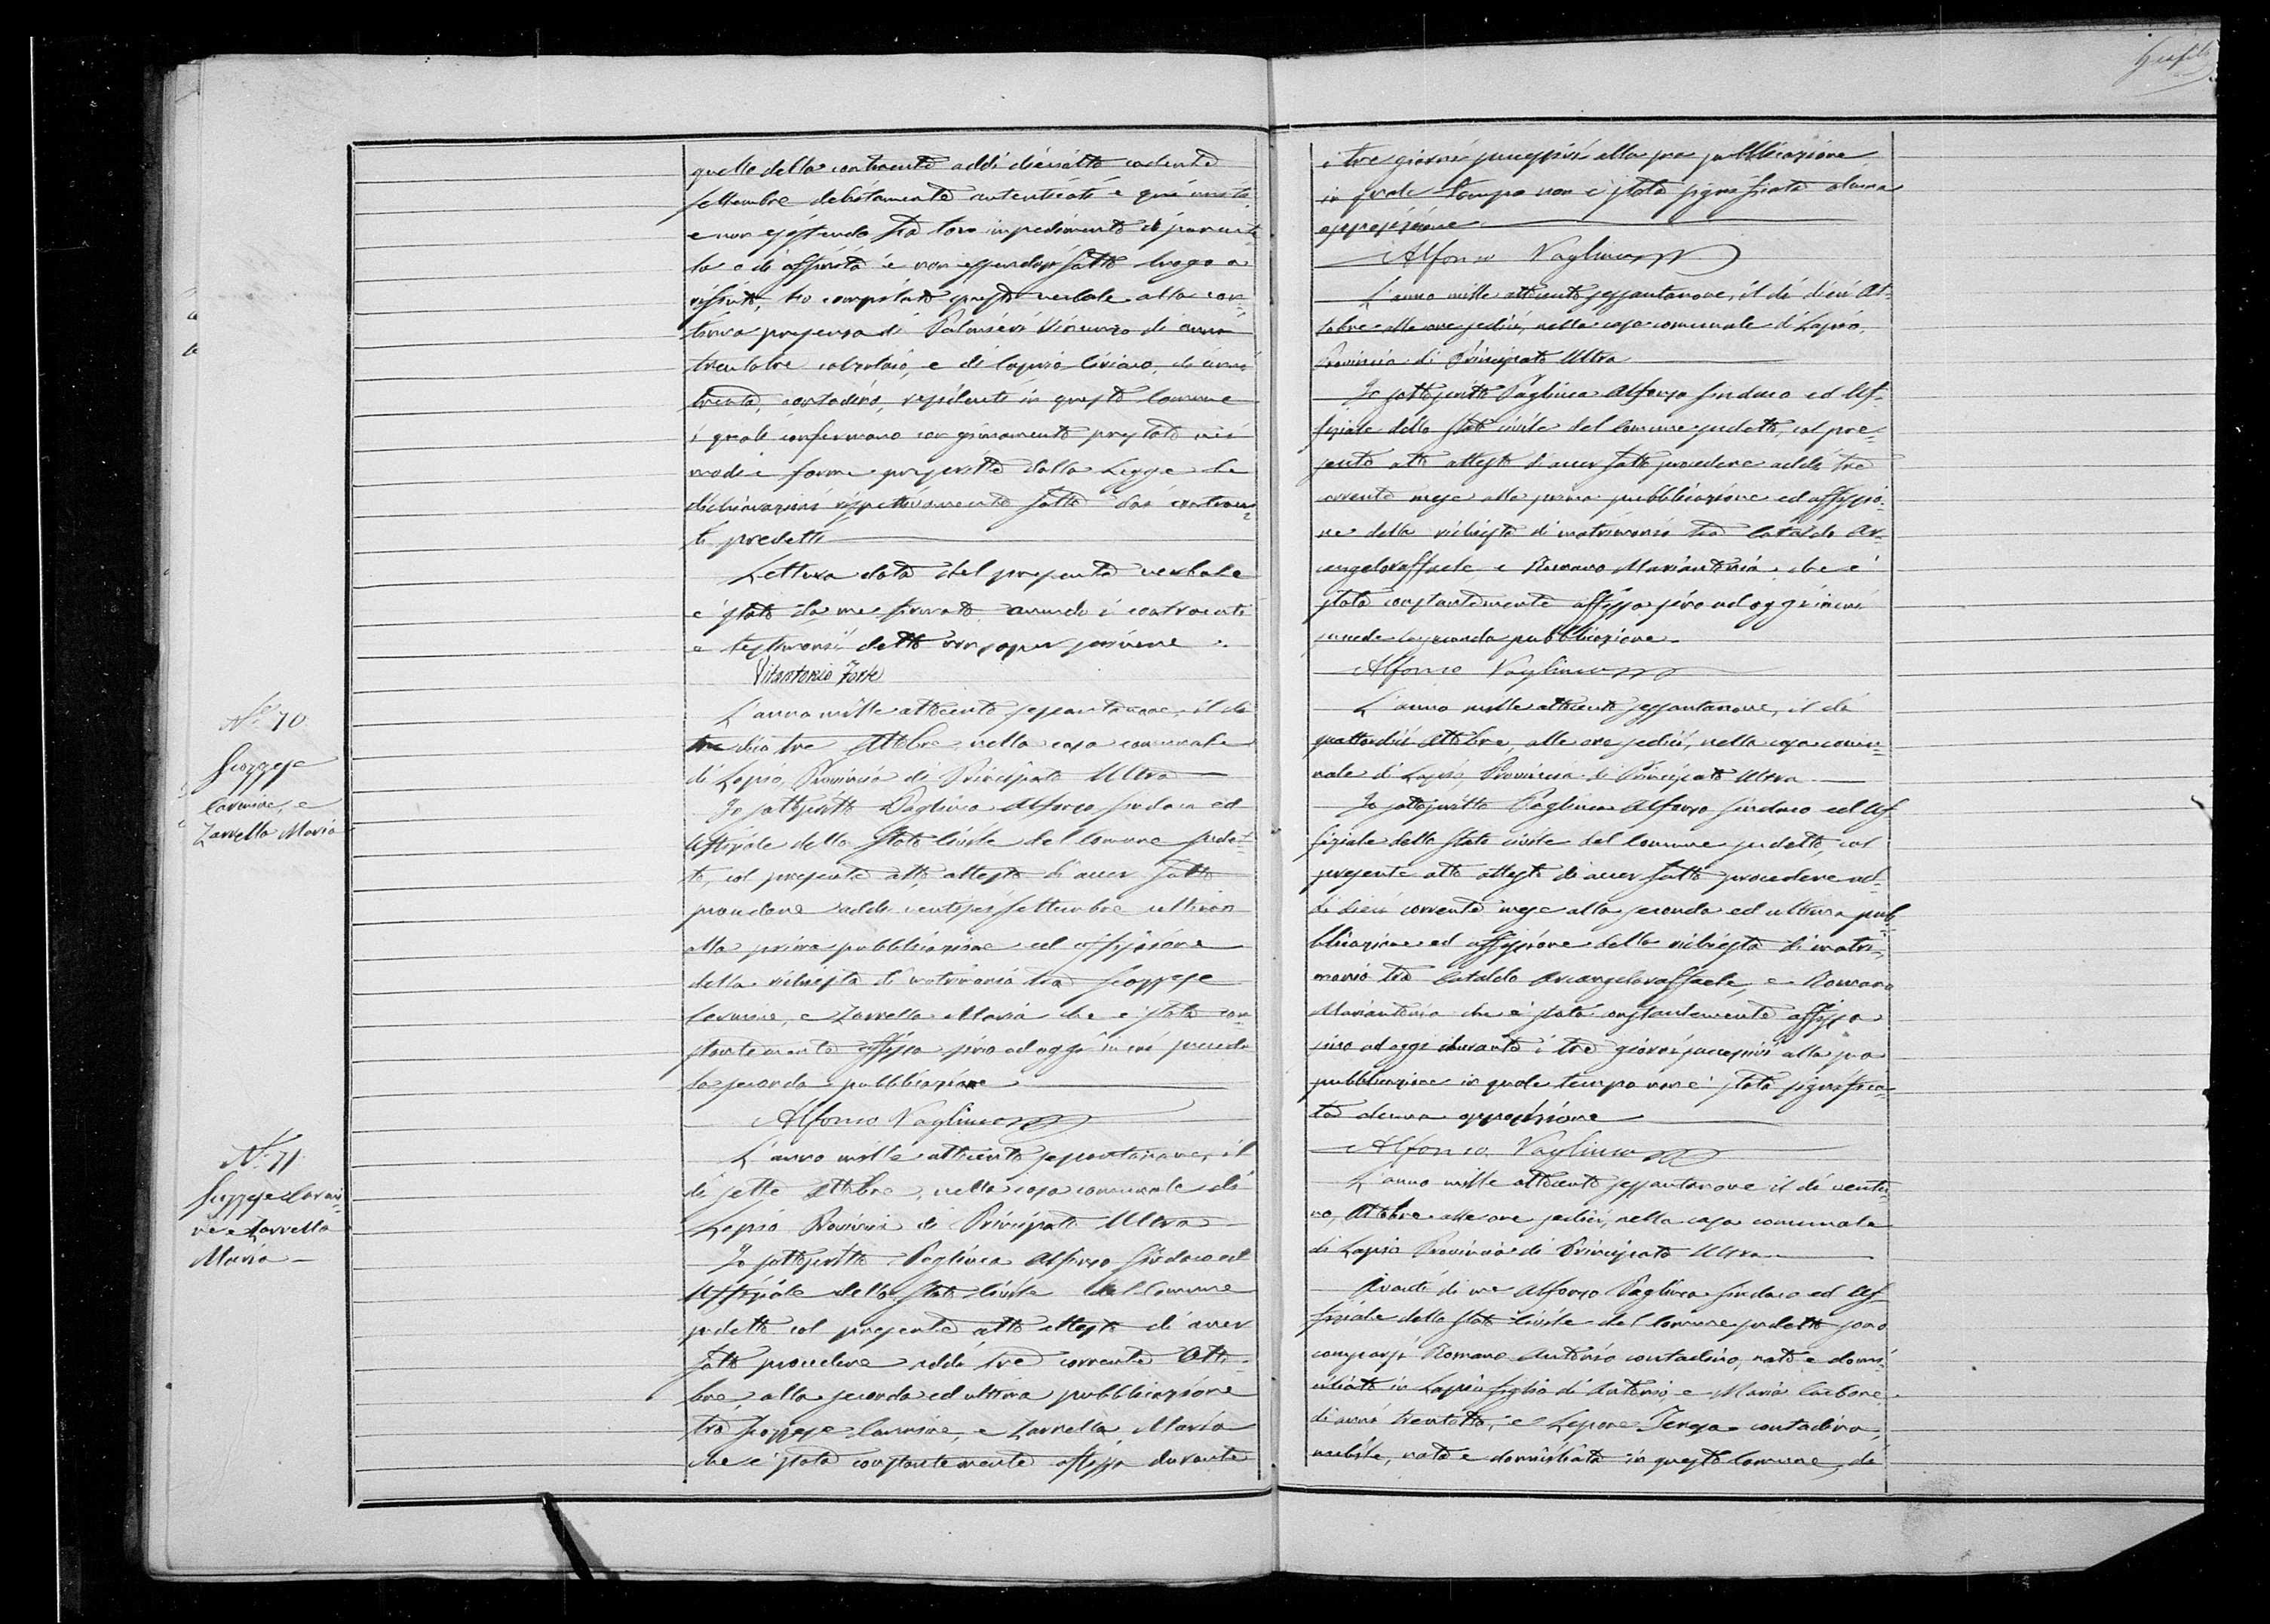 quello della contraente addì dieciotto cadente
settembre debitamente autenticati e qui uniti
e non esistendo fra loro impedimento di parente
la o di affinità e non essendosi fatto luogo a
rifiuto, ho compilato questo verbale alla con-
tinua presenza di Palmieri Vincenzo di anni
trentatre calzolaio, e di Lapio Ciriaco, di anni
trenta, contadino, residenti in questo Comune
i quali confermano con giuramento prestato nei
modi e forme prescritte dalla Legge le
dichiarazioni rispettivamente fatte dai contraen-
ti predetti
Lettura data del presente verbale
è stato da me firmato avendo i contraenti
e testimonii detto non saper scrivere.
Vitantonio Forte
N.º 70.
Scoppese
Carmine, e
Zarrella Maria
L'anno mille ottocento sessantanove, il dì
tre Ottobre nella casa comunale
di Lapio, Provincia di Principato Ultra
Io sottoscritto Vagliuca Alfonso Sindaco ed
Uffiziale dello Stato Civile del Comune sudet-
to, col presente atto attesto di aver fatto
procedere addì ventisei settembre ultimo
alla prima pubblicazione ed affissione
della richiesta di matrimonio tra Scoppese
Carmine, e Zarrella Maria che è stata con-
stantemente affissa sino ad oggi in cui procedo
la seconda pubblicazione
Alfonso Vagliuca
N.º 71
Scoppese Carmi-
ne e Zarrella
Maria
L'anno mille ottocento sessantanove, il
dì sette Ottobre, nella casa comunale di
Lapio Provincia di Principato Ultra
Io sottoscritto Vagliuca Alfonso Sindaco ed
Uffiziale dello Stato Civile del Comune
sudetto col presente atto attesto di aver
fatto procedere addì tre corrente Otto-
bre, alla seconda ed ultima pubblicazione
tra Scoppese Carmine, e Zarrella Maria
che è stata constantemente affissa durante
i tre giorni successivi alla sua pubblicazione
in quale tempo non è stata significata alcuna
opposizione
Alfonso Vagliuca
L'anno mille ottocento sessantanove, il dì dieci Ot-
tobre alle ore sedici, nella casa comunale di Lapio,
Provincia di Principato Ultra
Io sottoscritto Vagliuca Alfonso Sindaco ed Uf-
fiziale dello Stato civile del Comune sudetto, col pre-
sente atto attesto d'aver fatto procedere addì tre
corrente mese alla prima pubblicazione ed affissio-
ne della richiesta di matrimonio tra Cataldo Ar-
cangeloraffaele, e Romano Mariantonia che è
stata constantemente affissa sino ad oggi in cui
procede la seconda pubblicazione
Alfonso Vagliuca
L'anno mille ottocento sessantanove, il dì
quattordici Ottobre, alle ore sedici, nella casa comu-
nale di Lapio, Provincia di Principato Ultra
Io sottoscritto Vagliuca Alfonso Sindaco ed Uf-
fiziale dello Stato civile del Comune sudetto, col
presente atto attesto di aver fatto procedere ad-
dì dieci corrente mese alla seconda ed ultima pub-
blicazione ed affissione della richiesta di matri-
monio tra Cataldo Arcangeloraffaele, e Romano
Mariantonia che è stata constantemente affissa
sino ad oggi durante i tre giorni successivi alla sua
pubblicazione in quale tempo non è stata significa-
ta alcuna opposizione
Alfonso Vagliuca
L'anno mille ottocento sessantanove il dì ventu-
no, Ottobre alle ore sedici, nella casa comunale
di Lapio Provincia di Principato Ultra
Avanti di me Alfonso Vagliuca Sindaco ed Uf-
fiziale dello Stato Civile del Comune sudetto sono
comparsi Romano Antonio contadino, nato e domi-
ciliato in Lapio figlio di Antonio, e Maria Carbone,
di anni trentotto, e Lepore Teresa contadina,
nubile, nata e domiciliata in questo Comune, di